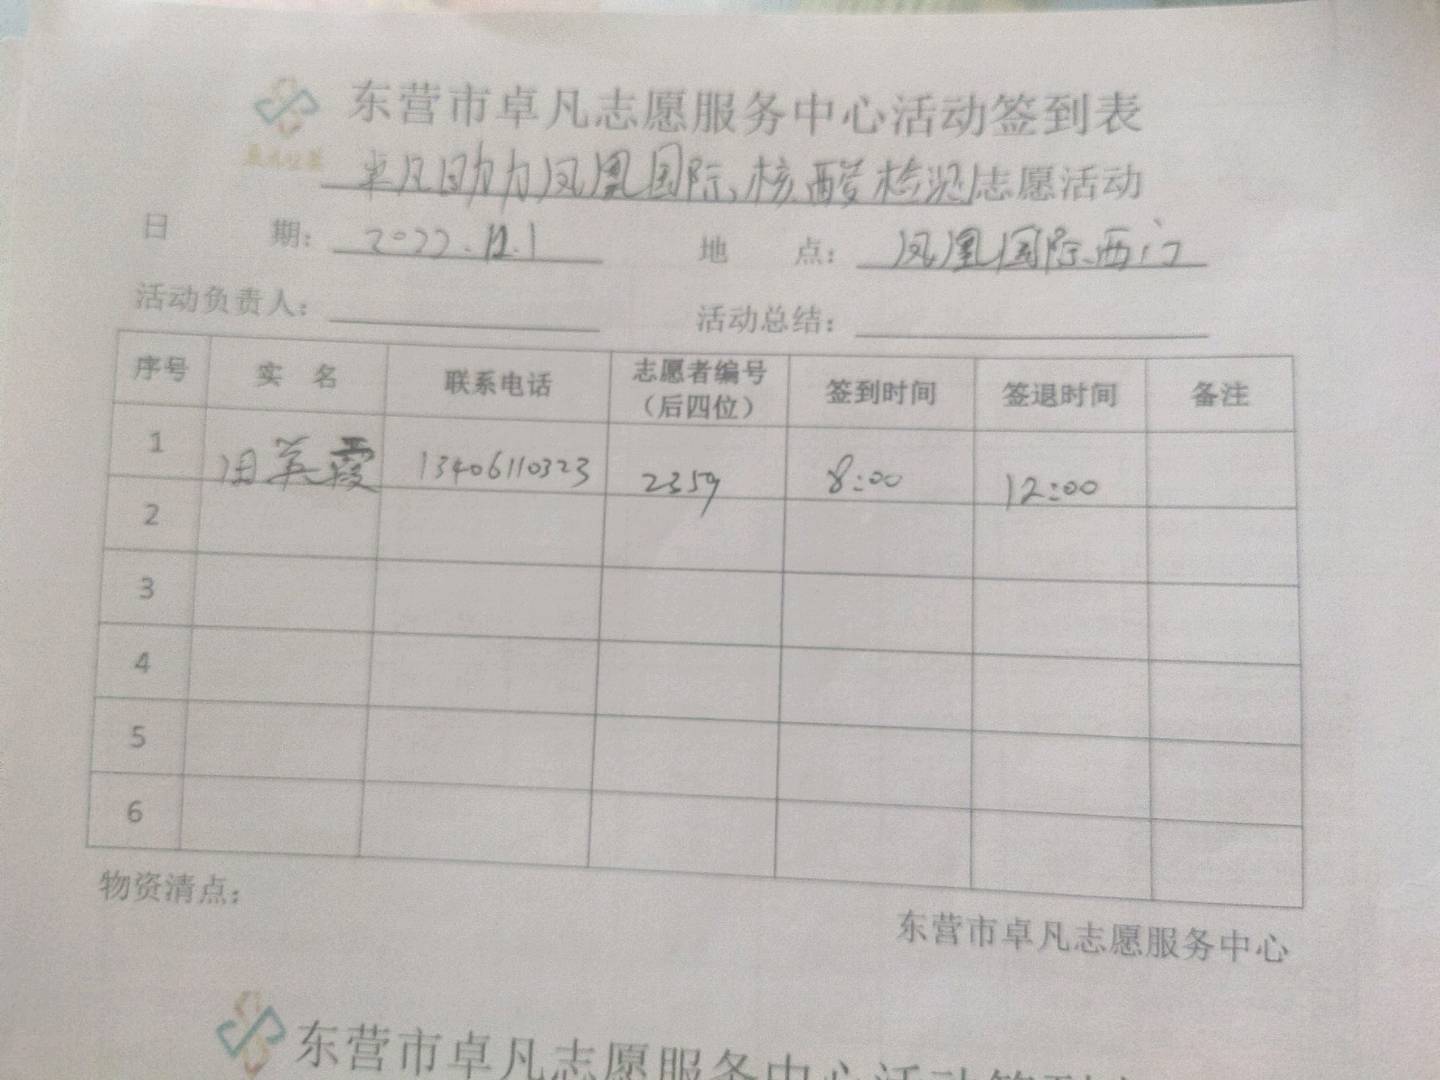 东营市卓凡志愿服务中心活动签到表
卓凡助力凤凰国际核酸检测志愿活动
日 期: 2022.12.1 地 点: 凤凰国际西门
活动负责人: 活动总结:
序号 实 名 联系电话 志愿者编号（后四位） 签到时间 签退时间 备注
1 田英霞 13406110323 2359 8:00 12:00
2
3
4
5
6
物资清点:
东营市卓凡志愿服务中心
东营市卓凡志愿服务中心活动签到